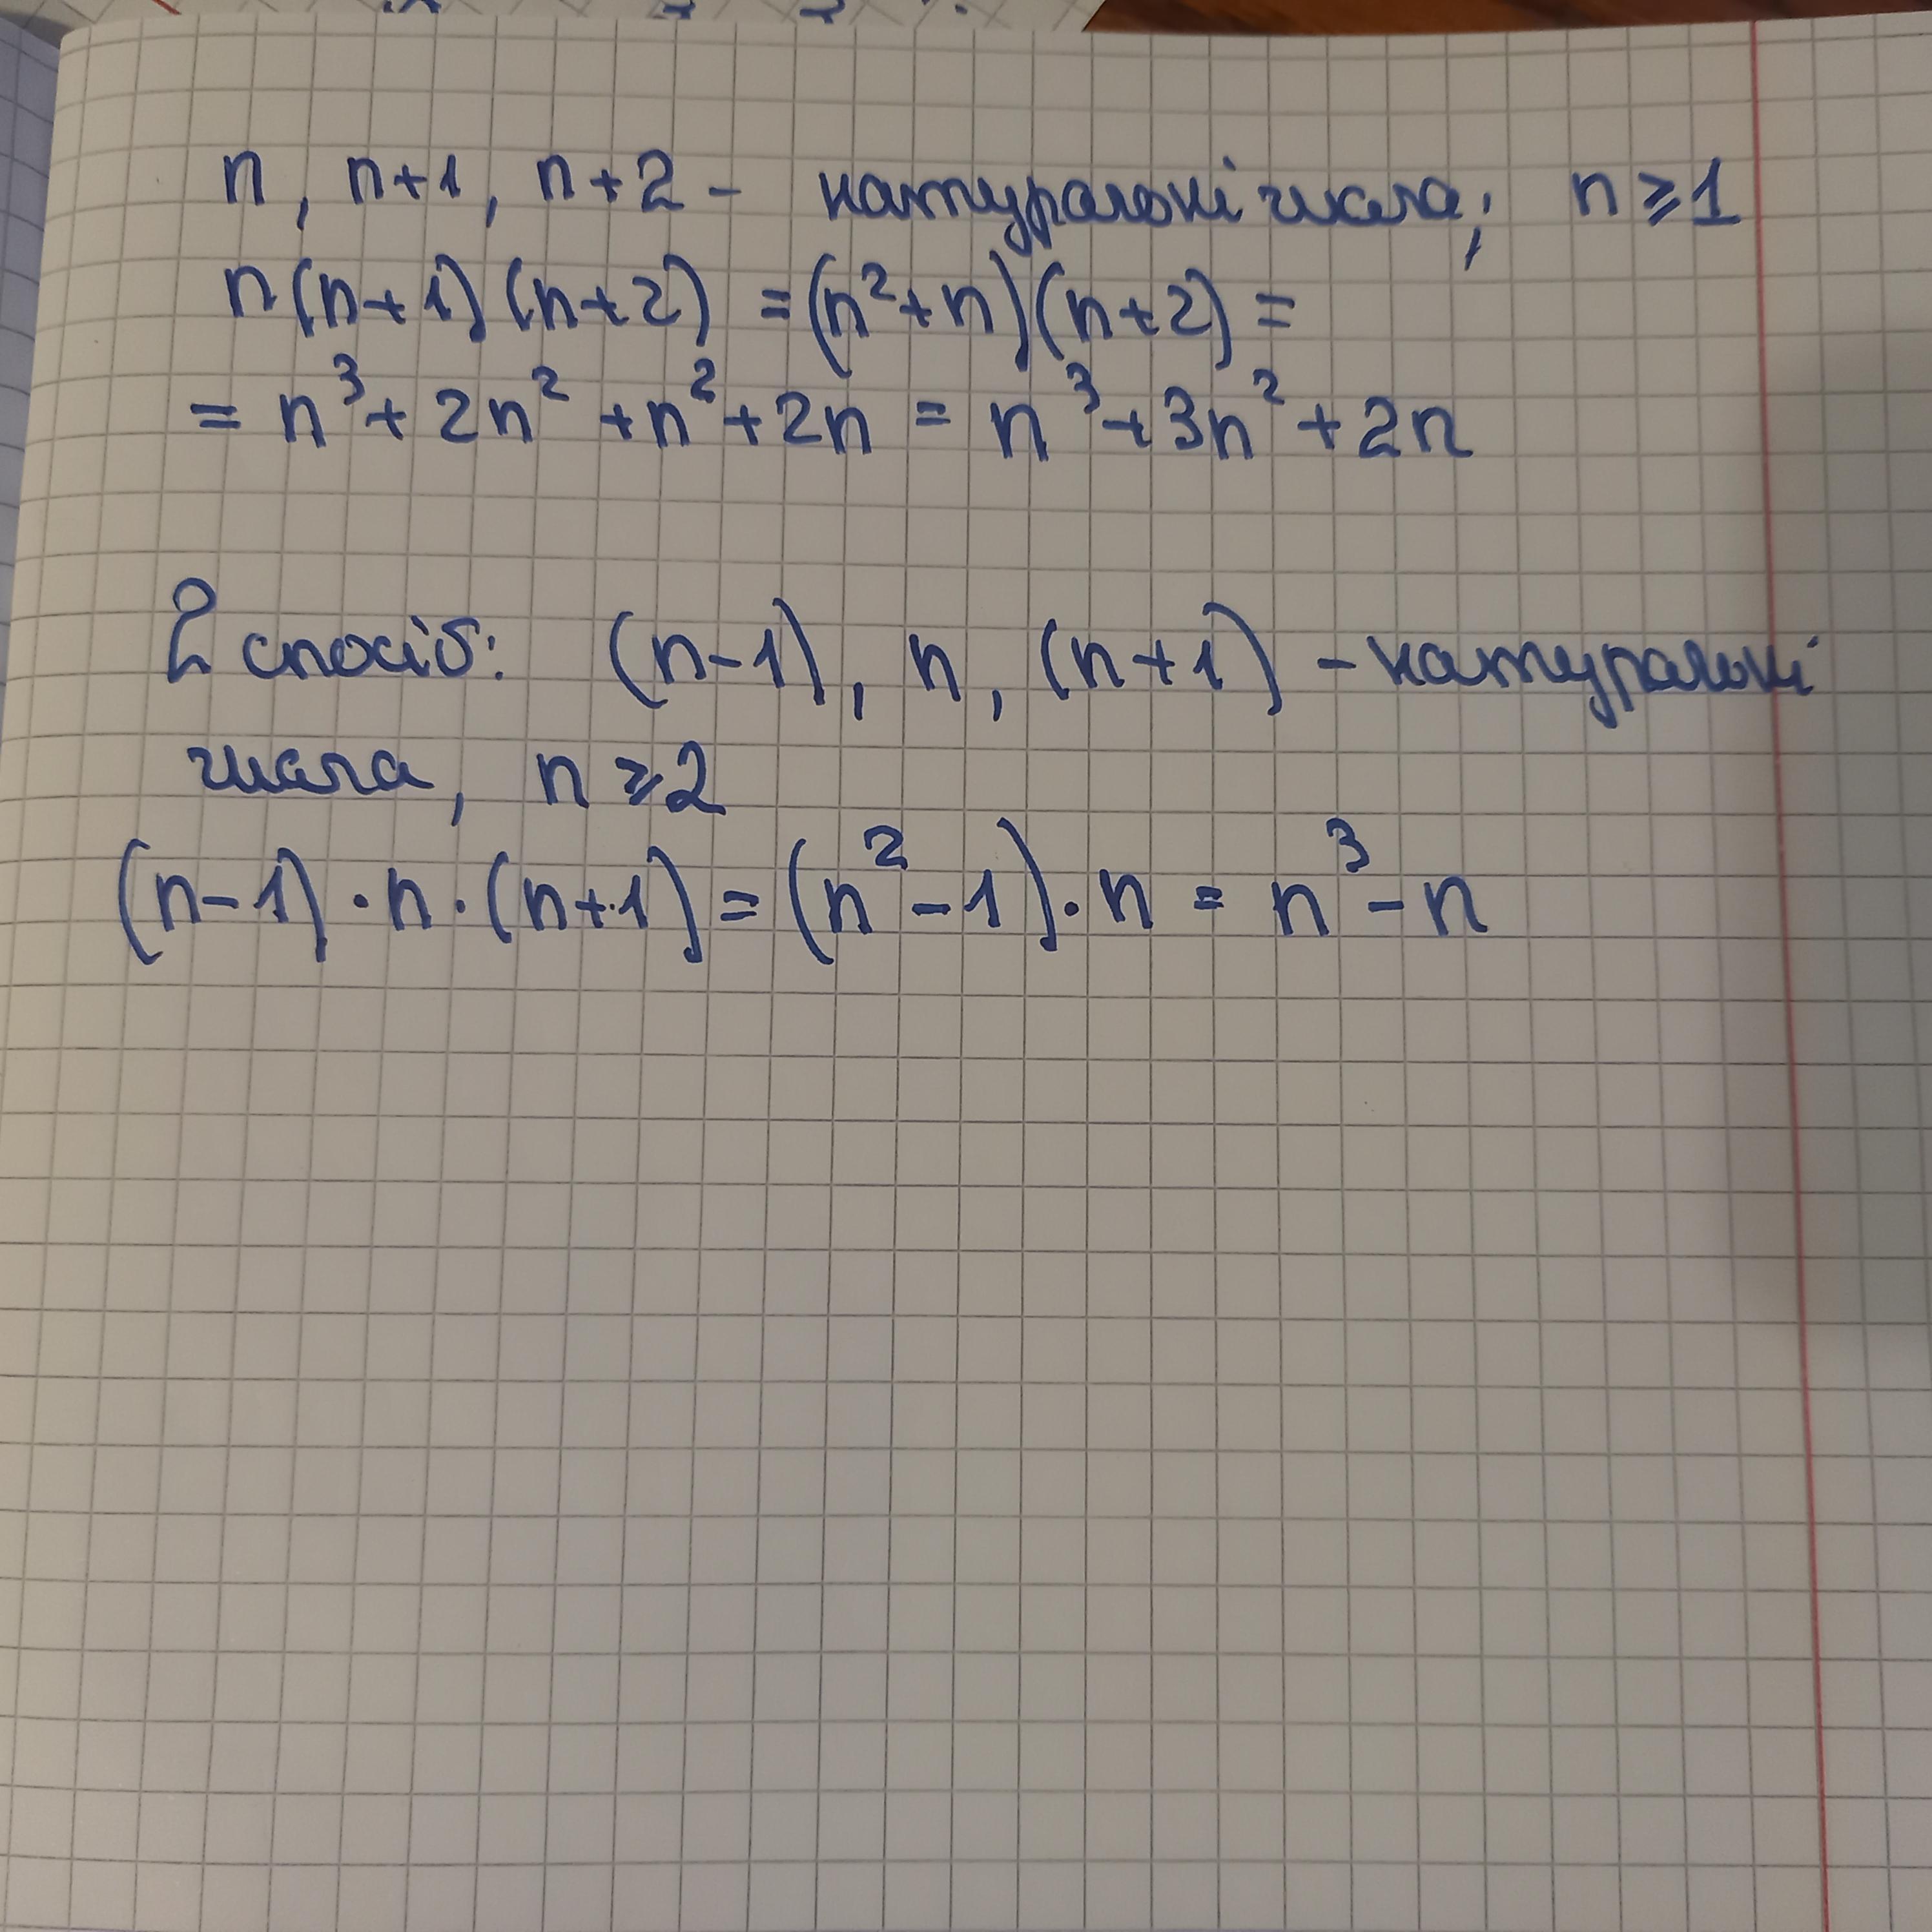 n, n+1, n+2 - натуральні числа; n ⩾ 1
n(n+1)(n+2) = (n²+n)(n+2) =
= n³ + 2n² + n² + 2n = n³ + 3n² + 2n
2 спосіб: (n-1), n, (n+1) - натуральні
числа, n ⩾ 2
(n-1)·n·(n+1) = (n²-1)·n = n³ - n